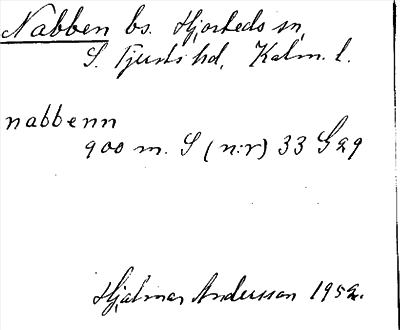 Nabben bs. Hjorteds sn,
S. Tjusts hd, Kalm. l.
nabbenn
900 m. S (n:r) 33 S29
Hjalmar Andersson 1952.